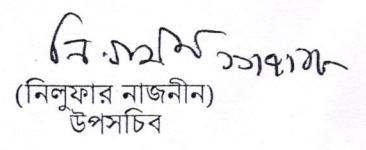 (নিলুফার নাজনীন)
উপসচিব